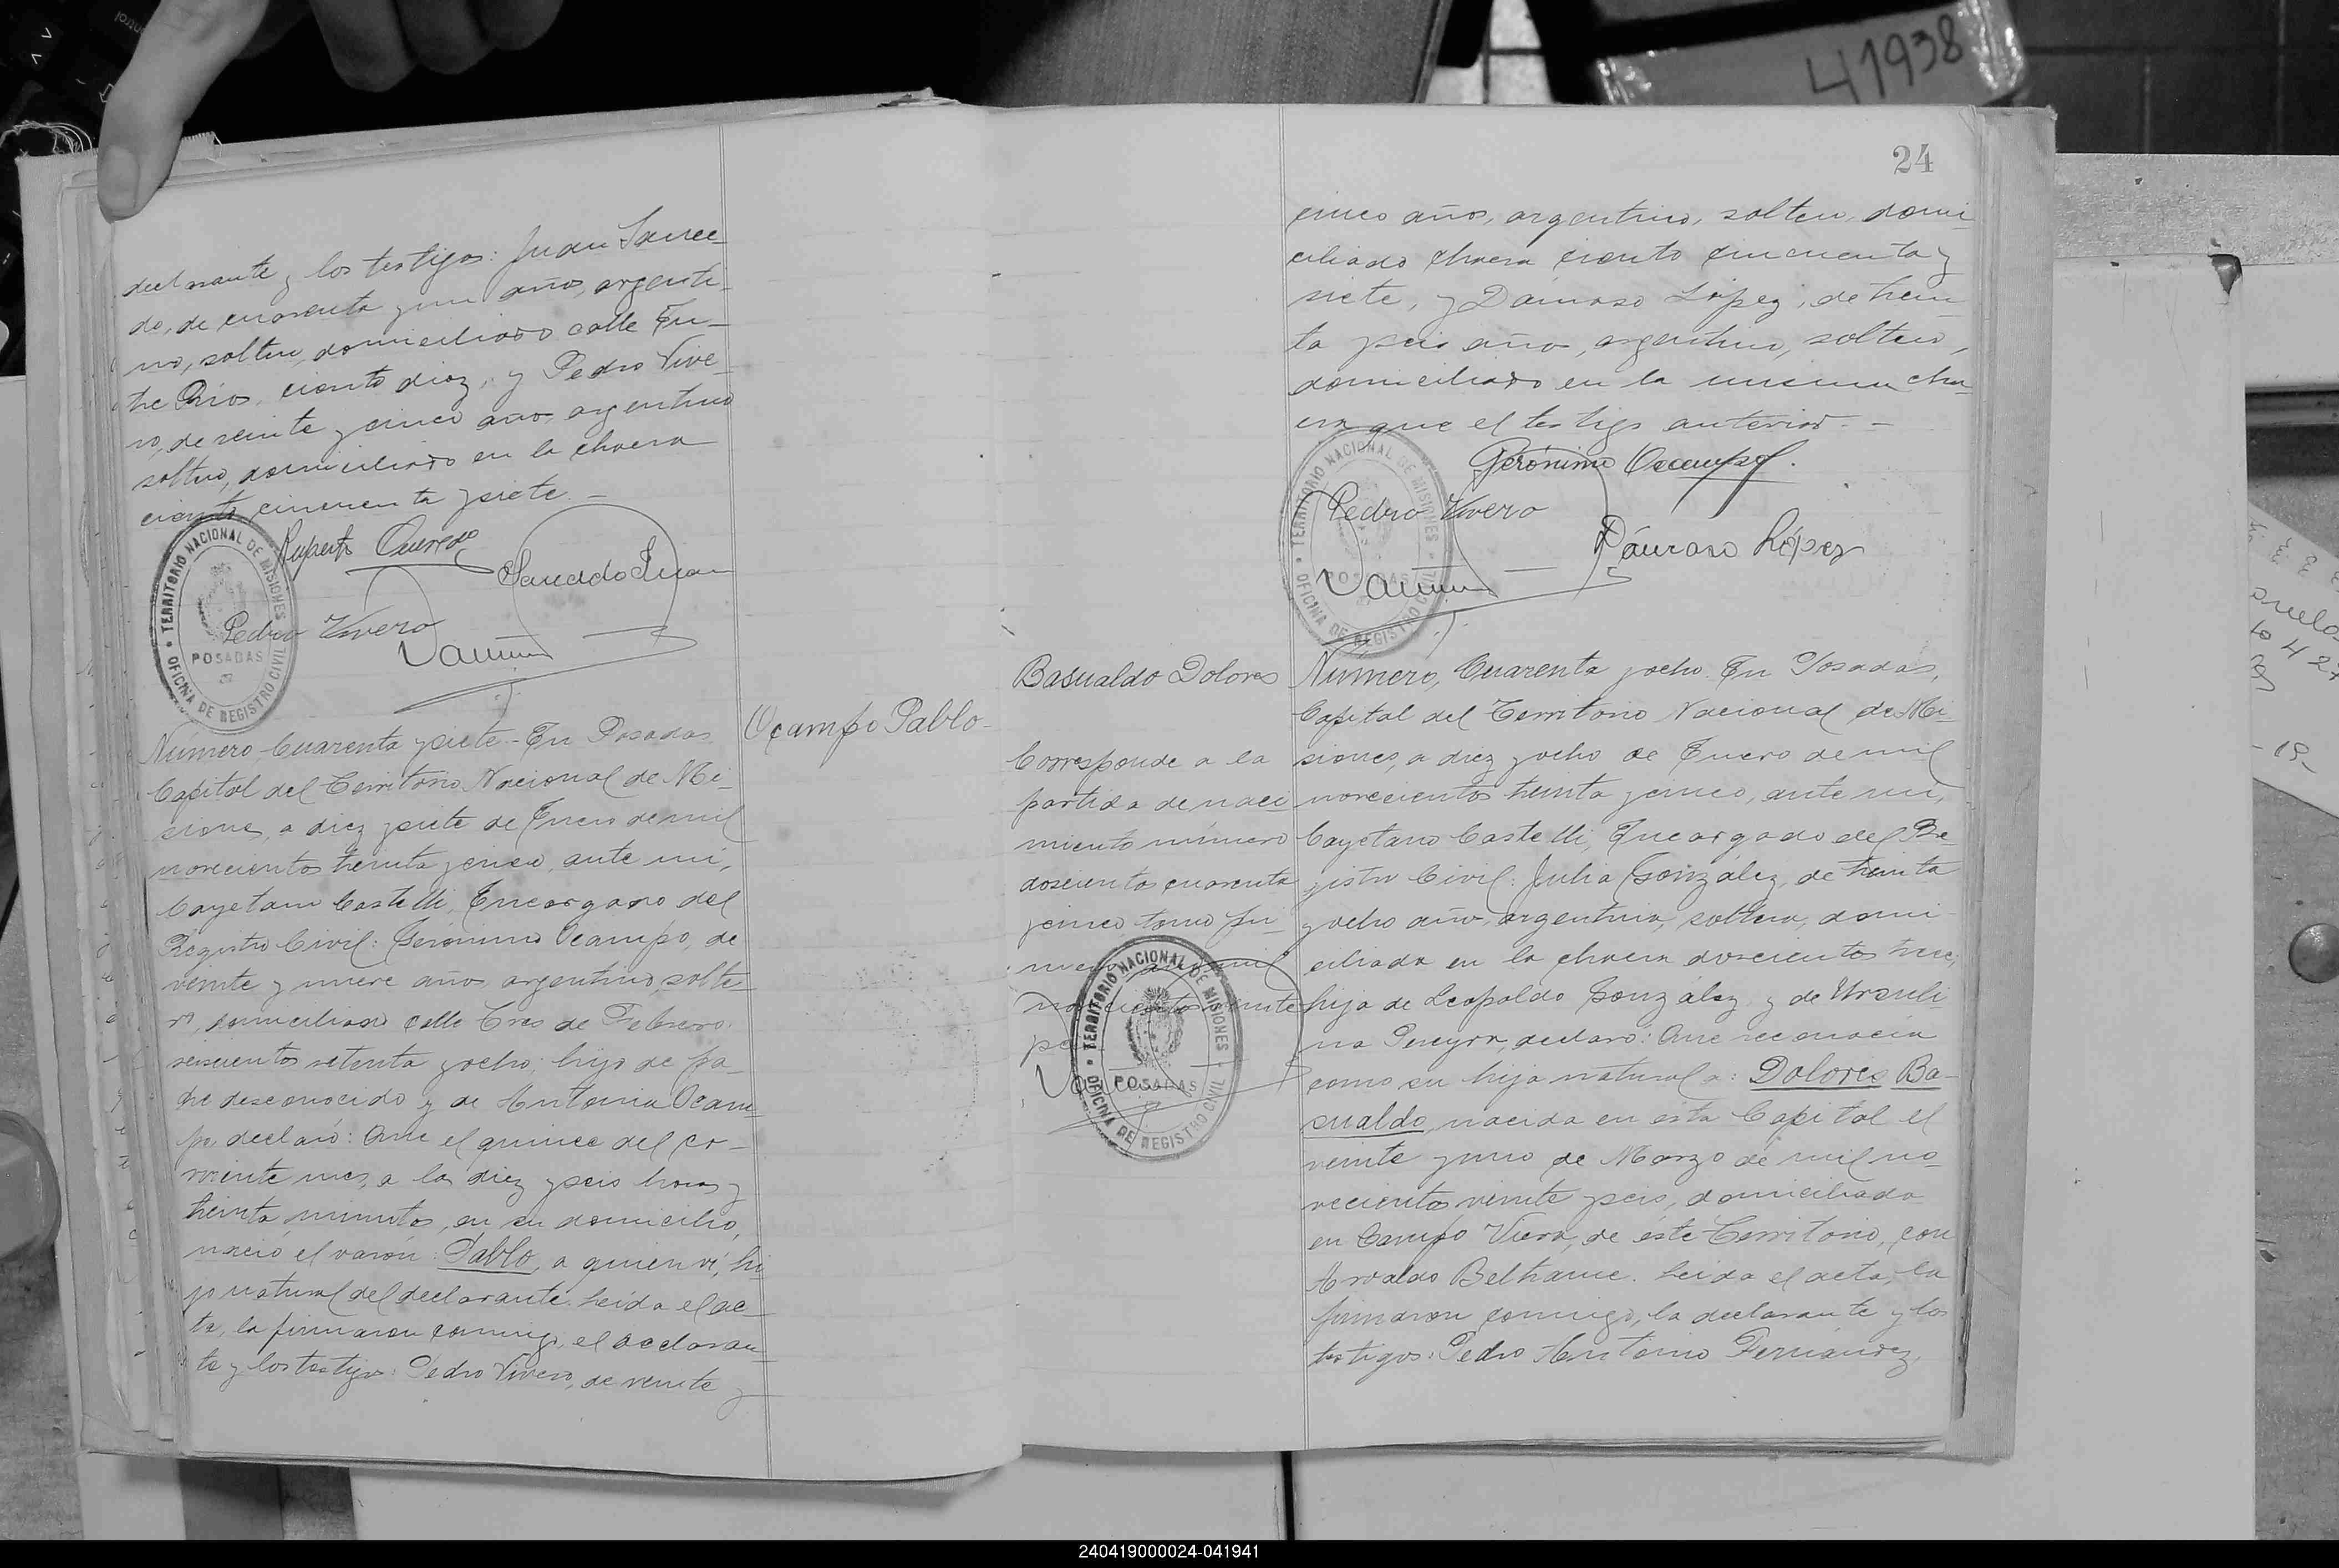 declarante y los testigos: Juan Sauce
do, de cuarenta y un años, argenti-
no, soltero, domiciliado calle En-
tre Ríos, ciento diez, y Pedro Vive-
ro, de veinte y cinco años, argentino
soltero, domiciliado en la chacra
ciento cincuenta y siete. -
Ruperto
Juan
Pedro Vivero
TERRITORIO NACIONAL DE MISIONES
OFICINA DE REGISTRO CIVIL
POSADAS
Número Cuarenta y siete - En Posadas
Capital del Territorio Nacional de Mi-
siones, a diez y siete de Enero de mil
novecientos treinta y cinco, ante mí,
Cayetano Castelli, Encargado del
Registro Civil: Gerónimo Ocampo, de
veinte y nueve años, argentino, solte-
ro, domiciliado calle Tres de Febrero,
seiscientos setenta y ocho, hijo de pa-
dre desconocido y de Antonia Ocam-
po, declaró: Que el quince del co-
rriente mes, a las diez y seis horas y
treinta minutos, en su domicilio,
nació el varón: Pablo, a quien ví, hi-
jo natural del declarante. Leída el ac-
ta, la firmaron conmigo, el declaran-
te y los testigos: Pedro Vivero, de veinte y
Ocampo Pablo-
24
cinco años, argentino, soltero, domi-
ciliado chacra ciento cincuenta y
siete, y Dámaso López, de trein-
ta y seis años, argentino, soltero,
domiciliado en la misma cha-
cra que el testigo anterior. -
Gerónimo Ocampo.
Pedro Vivero
Dámaso López
TERRITORIO NACIONAL DE MISIONES
OFICINA DE REGISTRO CIVIL
POSADAS
Basualdo Dolores
Corresponde a la
partida de naci
miento número
doscientos cuarenta
y cinco tomo pri
mero año mil
novecientos veinte
TERRITORIO NACIONAL DE MISIONES
POSADAS
OFICINA DE REGISTRO CIVIL
Número, Cuarenta y ocho. En Posadas,
Capital del Territorio Nacional de Mi-
siones, a diez y ocho de Enero de mil
novecientos treinta y cinco, ante mí,
Cayetano Castelli, Encargado del Re-
gistro Civil: Julia González, de treinta
y ocho años, argentina, soltera, domi-
ciliada en la chacra doscientos trece,
hija de Leopoldo González y de Ursuli-
na Pereyra, declaró: Que reconocía
como su hija natural a: Dolores Ba-
sualdo, nacida en esta Capital el
veinte y uno de Marzo de mil no-
vecientos veinte y seis, domiciliada
en Campo Viera, de éste Territorio, con
Arvaldo Beltrame. Leída el acta, la
firmaron conmigo, la declarante y los
testigos: Pedro Antonio Fernández,
41938
240419000024-041941